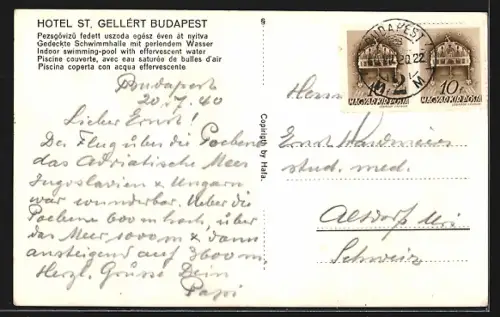 HOTEL ST. GELLÉRT BUDAPEST
Pezsgővizű fedett uszoda egész éven át nyitva
Gedeckte Schwimmhalle mit perlendem Wasser
Indoor swimming-pool with effervescent water
Piscine couverte, avec eau saturée de bulles d'air
Piscina coperta con acqua effervescente
Budapest
20. 40
Lieber Ernst!
Der Flug über die Poebene
das Adriatische Meer
Jugoslavien & Ungarn
war wunderbar. Ueber die
Poebene 600 m hoch, über
das Meer 1000 m & dann
ansteigend auf 3600 m.
Herzl. Grüsse Dein
Papi
Copyright by Hafa.
BUDAPEST
20.22
72
M
10f
MAGYAR KIR. POSTA
10f
MAGYAR KIR. POSTA
Herrn
Ernst
stud. med.
Altdorf Uri
Schweiz